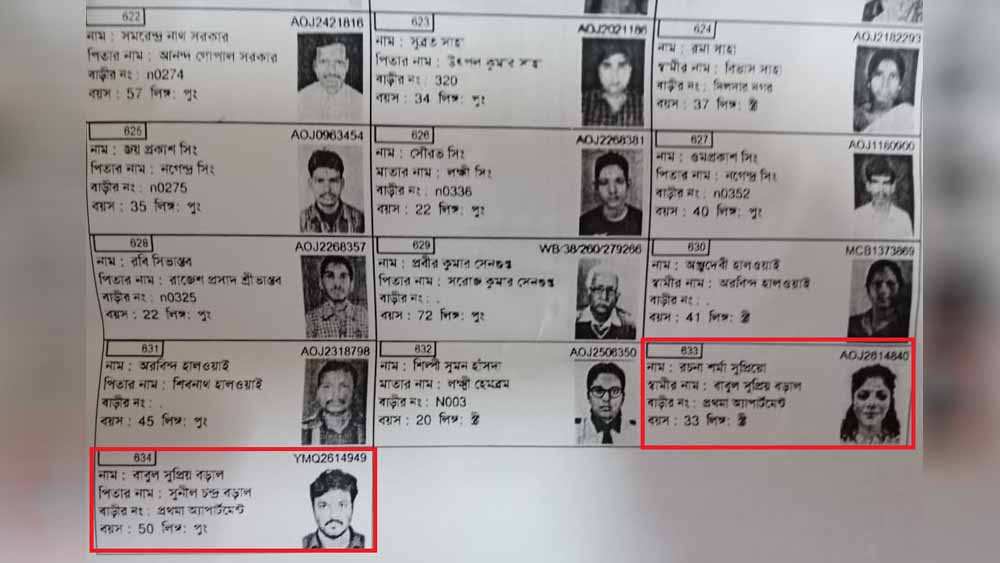 622
AOJ2421816
নাম : সমরেন্দ্র নাথ সরকার
পিতার নাম : আনন্দ গোপাল সরকার
বাড়ীর নং : n0274
বয়স : 57 লিঙ্গ: পুং
623
AOJ2021186
নাম : সুব্রত সাহা
পিতার নাম : উৎপল কুমার সাহা
বাড়ীর নং : 320
বয়স : 34 লিঙ্গ: পুং
624
AOJ2182293
নাম : রমা সাহা
স্বামীর নাম : বিভাস সাহা
বাড়ীর নং : মিলনার নগর
বয়স : 37 লিঙ্গ: স্ত্রী
625
AOJ0963454
নাম : জয় প্রকাশ সিং
পিতার নাম : নগেন্দ্র সিং
বাড়ীর নং : n0275
বয়স : 35 লিঙ্গ: পুং
626
AOJ2268381
নাম : সৌরভ সিং
মাতার নাম : লক্ষী সিং
বাড়ীর নং : n0336
বয়স : 22 লিঙ্গ: পুং
627
AOJ1160900
নাম : ওমপ্রকাশ সিং
পিতার নাম : নগেন্দ্র সিং
বাড়ীর নং : n0352
বয়স : 40 লিঙ্গ: পুং
628
AOJ2268357
নাম : রবি সিভাস্তব
পিতার নাম : রাজেশ প্রসাদ শ্রীভাস্তব
বাড়ীর নং : n0325
বয়স : 22 লিঙ্গ: পুং
629
WB/38/260/279266
নাম : প্রবীর কুমার সেনগুপ্ত
পিতার নাম : সরোজ কুমার সেনগুপ্ত
বাড়ীর নং : .
বয়স : 72 লিঙ্গ: পুং
630
MCB1373869
নাম : অঞ্জুদেবী হালওয়াই
স্বামীর নাম : অরবিন্দ হালওয়াই
বাড়ীর নং : .
বয়স : 41 লিঙ্গ: স্ত্রী
631
AOJ2318798
নাম : অরবিন্দ হালওয়াই
পিতার নাম : শিবনাথ হালওয়াই
বাড়ীর নং : .
বয়স : 45 লিঙ্গ: পুং
632
AOJ2506350
নাম : শিল্পী সুমন হাঁসদা
মাতার নাম : লক্ষ্মী হেমব্রম
বাড়ীর নং : N003
বয়স : 20 লিঙ্গ: স্ত্রী
633
AOJ2614840
নাম : রচনা শর্মা সুপ্রিয়ো
স্বামীর নাম : বাবুল সুপ্রিয় বড়াল
বাড়ীর নং : প্রথমা অ্যাপার্টমেন্ট
বয়স : 33 লিঙ্গ: স্ত্রী
634
YMQ2614949
নাম : বাবুল সুপ্রিয় বড়াল
পিতার নাম : সুনীল চন্দ্র বড়াল
বাড়ীর নং : প্রথমা অ্যাপার্টমেন্ট
বয়স : 50 লিঙ্গ: পুং